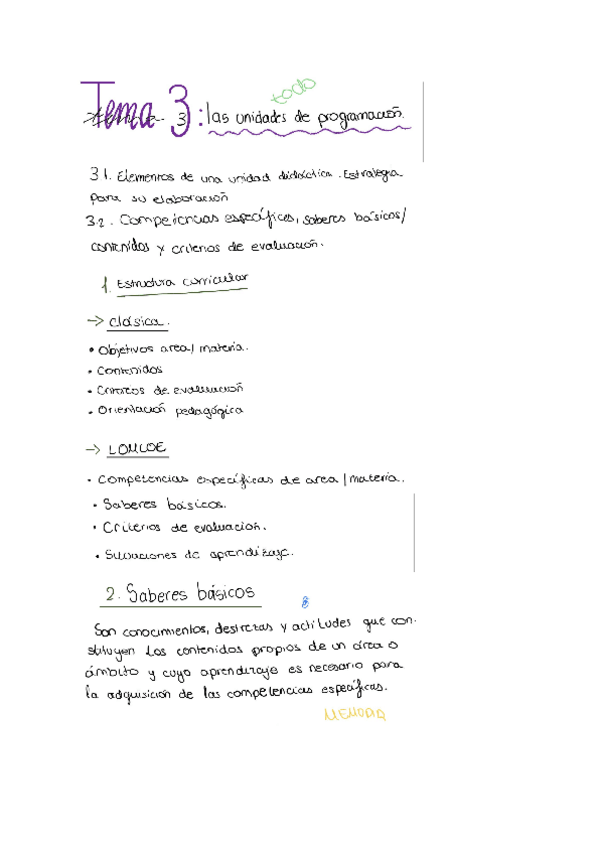 todo
Tema 3: las unidades de programación.
3.1. Elementos de una unidad didáctica. Estrategia
para su elaboración
3.2. Competencias específicas, saberes básicos/
contenidos y criterios de evaluación.
1. Estructura curricular
→ Clásica.
• Objetivos area/materia.
• Contenidos
• Criterios de evaluación
• Orientación pedagógica
→ LOMLOE
• Competencias específicas de area/materia.
• Saberes básicos.
• Criterios de evaluación.
• Situaciones de aprendizaje.
2. Saberes básicos
Son conocimientos, destrezas y actitudes que con-
stituyen los contenidos propios de un área o
ámbito y cuyo aprendizaje es necesario para
la adquisición de las competencias específicas.
MEMORIA